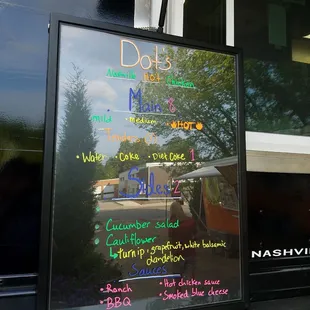 Dot's
Nashville Hot Chicken
Main 6
Mild • Medium •HOT
• Water • Coke • Diet Coke 1
Sides 2
• Cucumber salad
• Cauliflower
turnip, grapefruit, white balsamic
dandelion
Sauces
• Ranch • Hot chicken sauce
• BBQ • Smoked blue cheese
NASHVI